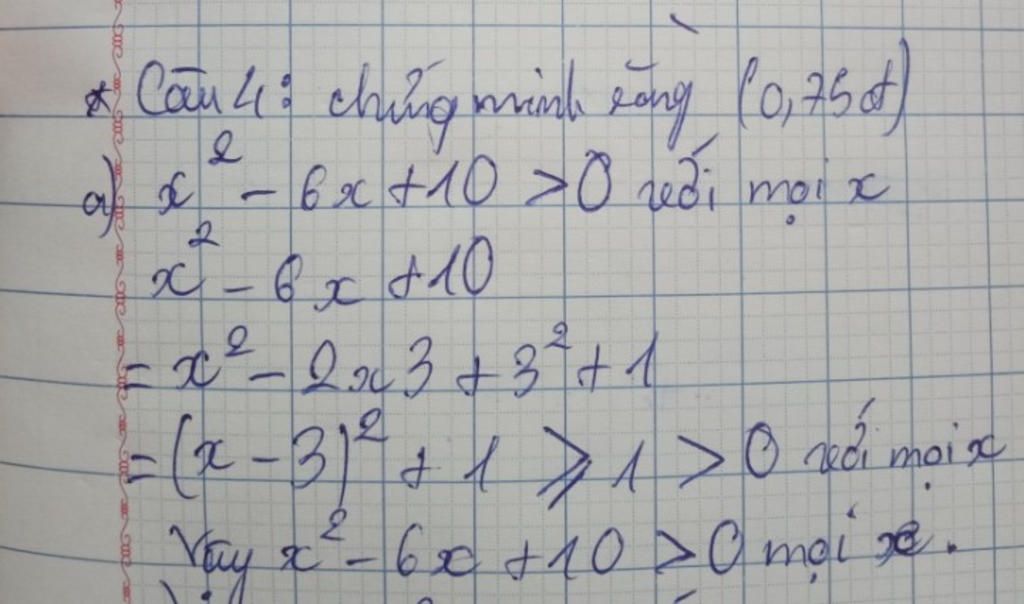 * Câu 4: chứng minh rằng (0,75đ)
a) x² - 6x + 10 > 0 với mọi x
x² - 6x + 10
= x² - 2x3 + 3² + 1
= (x - 3)² + 1 ⩾ 1 > 0 với mọi x
Vậy x² - 6x + 10 > 0 mọi x.